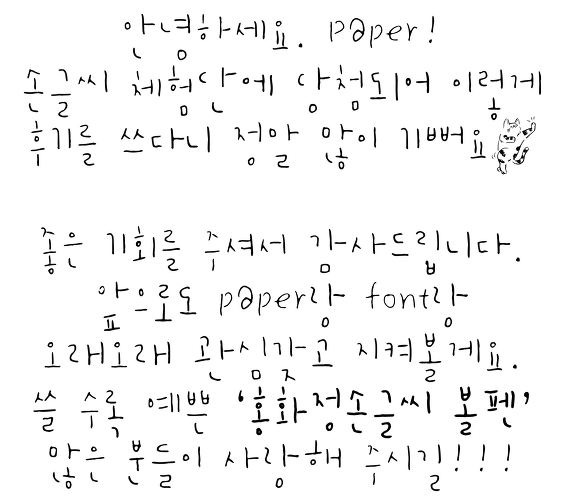 안녕하세요. paper!
손글씨 체험단에 당첨되어 이렇게
후기를 쓰다니 정말 많이 기뻐요
좋은 기회를 주셔서 감사드립니다.
앞으로도 paper랑 font랑
오래오래 관심갖고 지켜볼게요.
쓸 수록 예쁜 '홍화정손글씨 볼펜'
많은 분들이 사랑해 주시길!!!